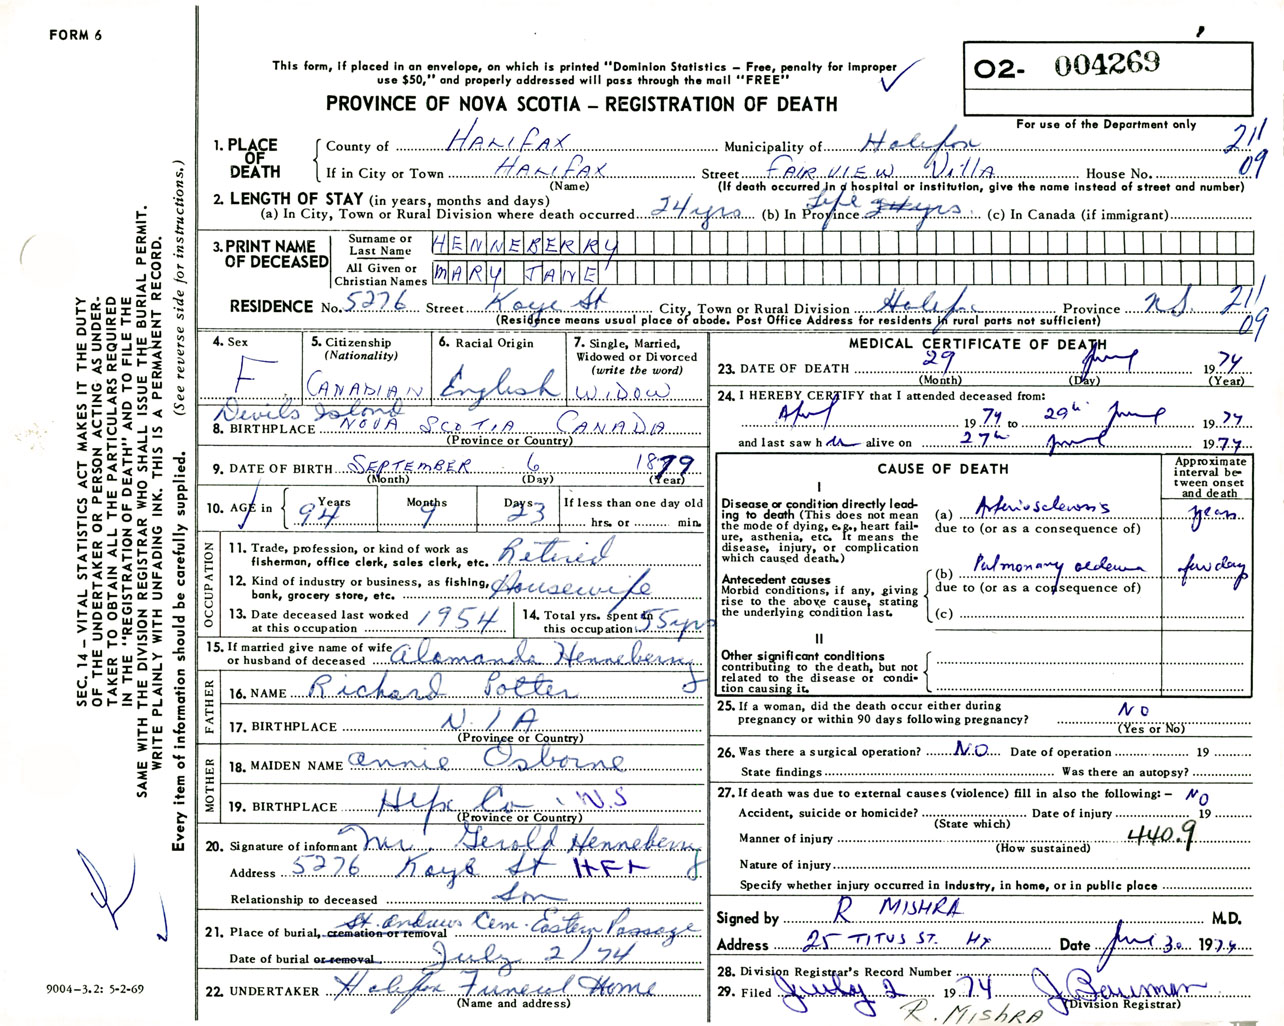 FORM 6
This form, if placed in an envelope, on which is printed "Dominion Statistics – Free, penalty for improper
use $50," and properly addressed will pass through the mail "FREE"
PROVINCE OF NOVA SCOTIA – REGISTRATION OF DEATH
O2- 004269
For use of the Department only
211
09
1. PLACE OF DEATH
County of Halifax Municipality of Halifax
If in City or Town Halifax Street Fairview Villa House No.
(Name) (If death occurred in a hospital or institution, give the name instead of street and number)
2. LENGTH OF STAY (in years, months and days)
(a) In City, Town or Rural Division where death occurred 24 yrs (b) In Province Life 24 yrs. (c) In Canada (if immigrant)
3. PRINT NAME OF DECEASED
Surname or Last Name HENNEBERRY
All Given or Christian Names MARY JANE
RESIDENCE No. 5276 Street Kaye St City, Town or Rural Division Halifax Province N.S. 211
09
(Residence means usual place of abode. Post Office Address for residents in rural parts not sufficient)
4. Sex F
5. Citizenship (Nationality) CANADIAN
6. Racial Origin English
7. Single, Married, Widowed or Divorced (write the word) WIDOW
Devils Island
8. BIRTHPLACE NOVA SCOTIA CANADA
(Province or Country)
9. DATE OF BIRTH SEPTEMBER 6 1879
(Month) (Day) (Year)
10. AGE in Years 94 Months 9 Days 23 If less than one day old hrs. or min.
OCCUPATION
11. Trade, profession, or kind of work as fisherman, office clerk, sales clerk, etc. Retired
12. Kind of industry or business, as fishing, bank, grocery store, etc. Housewife
13. Date deceased last worked at this occupation 1954
14. Total yrs. spent in this occupation 55 yrs
15. If married give name of wife or husband of deceased Alamanda Henneberry
FATHER
16. NAME Richard Potter
17. BIRTHPLACE N/A
(Province or Country)
MOTHER
18. MAIDEN NAME Annie Osborne
19. BIRTHPLACE Hfx Co, N.S
(Province or Country)
20. Signature of informant Mr. Gerald Henneberry
Address 5276 Kaye St HFX
Relationship to deceased Son
21. Place of burial, cremation or removal St. Andrews Cem. Eastern Passage
Date of burial or removal July 2/74
22. UNDERTAKER Halifax Funeral Home
(Name and address)
MEDICAL CERTIFICATE OF DEATH
23. DATE OF DEATH 29 June 1974
(Month) (Day) (Year)
24. I HEREBY CERTIFY that I attended deceased from:
April 1974 to 29th June 1974
and last saw her alive on 27th June 1974
CAUSE OF DEATH
Approximate interval between onset and death
I
Disease or condition directly leading to death (This does not mean the mode of dying, e.g., heart failure, asthenia, etc. It means the disease, injury, or complication which caused death.)
(a) Arteriosclerosis years
due to (or as a consequence of)
Antecedent causes
Morbid conditions, if any, giving rise to the above cause, stating the underlying condition last.
(b) Pulmonary oedema few days
due to (or as a consequence of)
(c)
II
Other significant conditions
contributing to the death, but not related to the disease or condition causing it.
25. If a woman, did the death occur either during pregnancy or within 90 days following pregnancy? NO
(Yes or No)
26. Was there a surgical operation? NO Date of operation 19
State findings Was there an autopsy?
27. If death was due to external causes (violence) fill in also the following: – NO
Accident, suicide or homicide? Date of injury 19
(State which)
Manner of injury 440.9
(How sustained)
Nature of injury
Specify whether injury occurred in industry, in home, or in public place
Signed by R MISHRA M.D.
Address 25 TITUS ST. Hx Date June 30 1974
28. Division Registrar's Record Number
29. Filed July 2 1974 J Bauman
(Division Registrar)
R. MISHRA
SEC. 14 – VITAL STATISTICS ACT MAKES IT THE DUTY
OF THE UNDERTAKER OR PERSON ACTING AS UNDER-
TAKER TO OBTAIN ALL THE PARTICULARS REQUIRED
IN THE "REGISTRATION OF DEATH" AND TO FILE THE
SAME WITH THE DIVISION REGISTRAR WHO SHALL ISSUE THE BURIAL PERMIT.
WRITE PLAINLY WITH UNFADING INK. THIS IS A PERMANENT RECORD.
Every item of information should be carefully supplied. (See reverse side for instructions.)
9004-3.2: 5-2-69